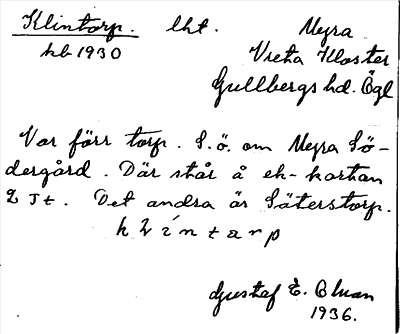 Klintorp. lht. Mejra
kb 1930 Vreta Kloster
Gullbergs hd. Ögl
Var förr torp. S.ö. om Mejra Sö-
dergård. Där står å ek-kartan
2 st. Det andra är Säterstorp.
Gustaf E. 
1936.